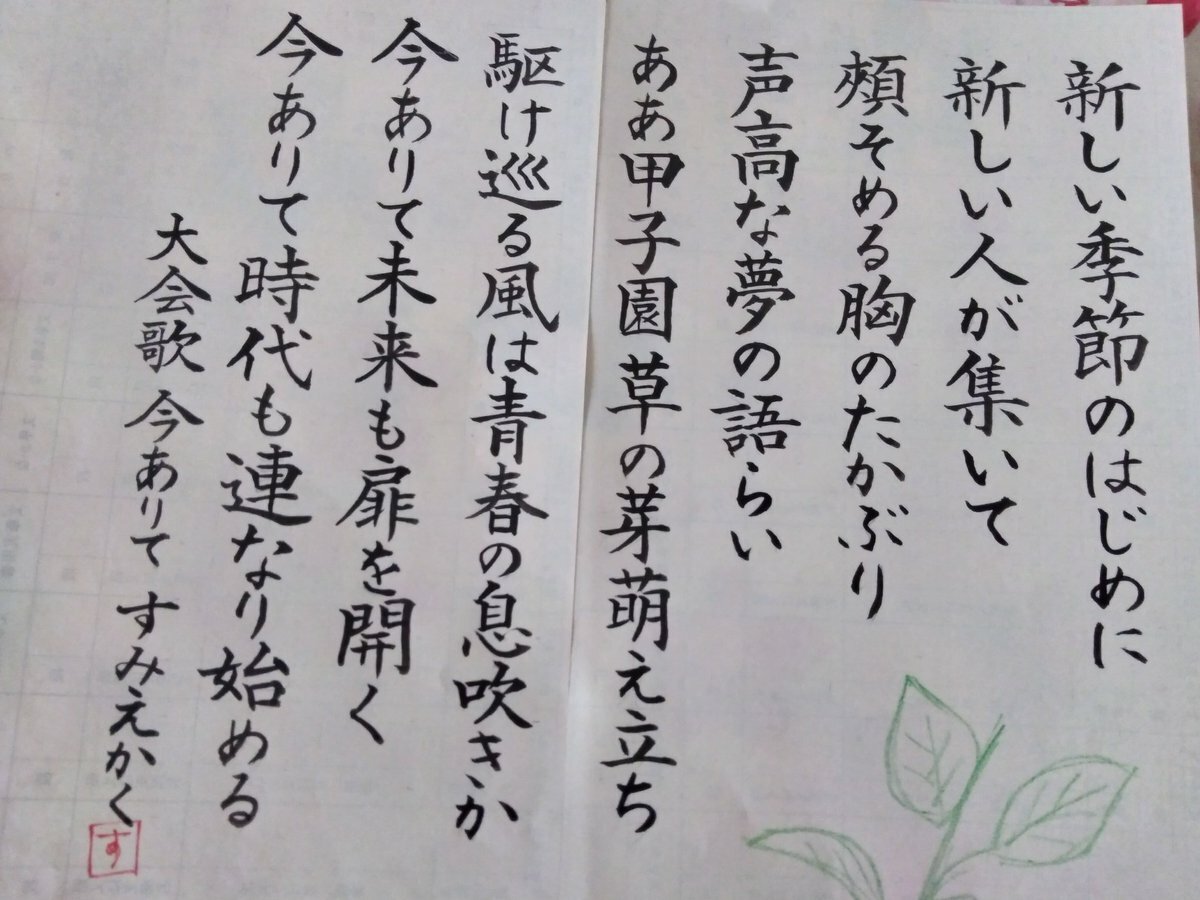 新しい季節のはじめに
新しい人が集いて
頬そめる胸のたかぶり
声高な夢の語らい
ああ甲子園草の芽萌え立ち
駆け巡る風は青春の息吹きか
今ありて未来も扉を開く
今ありて時代も連なり始める
大会歌 今ありて すみえかく
す